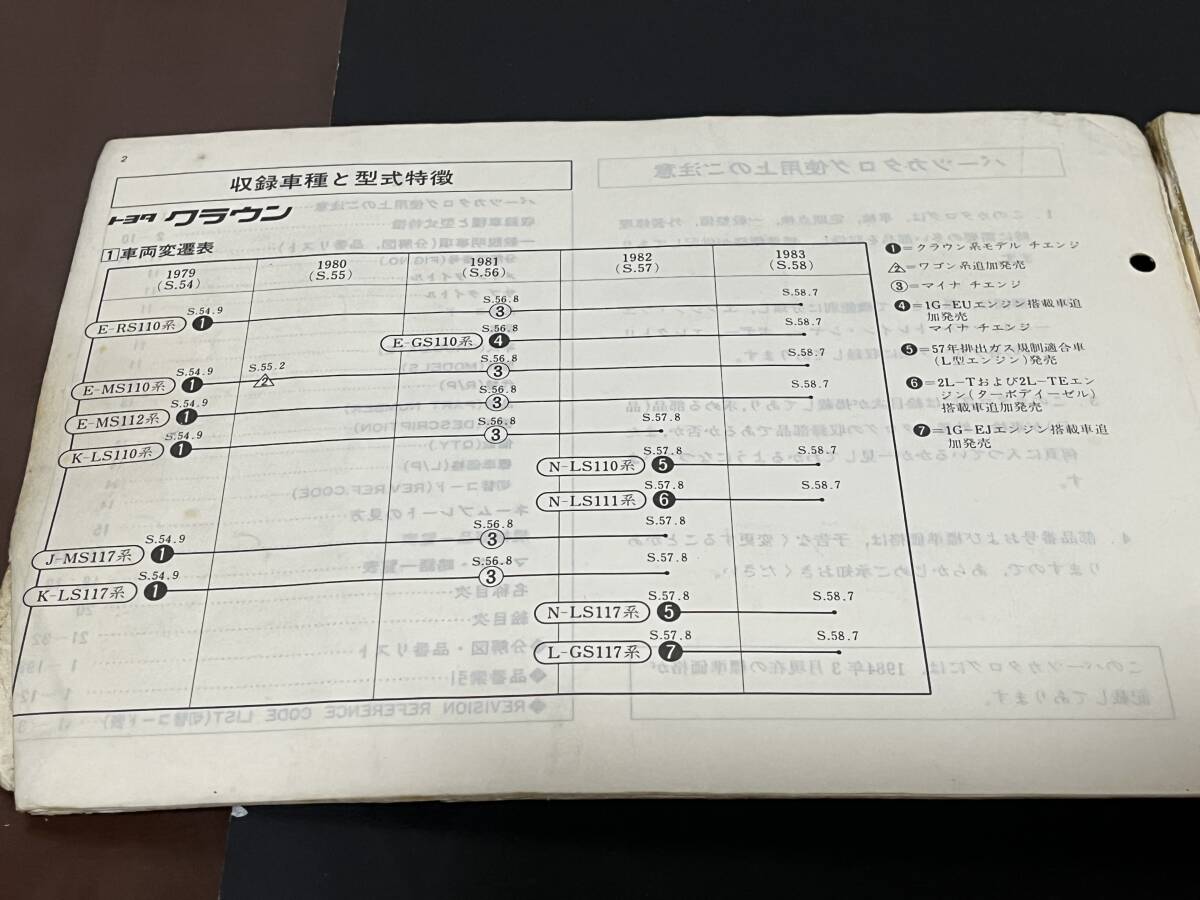 2
収録車種と型式特徴
トヨタ クラウン
1 車両変遷表
1979 (S.54)
1980 (S.55)
1981 (S.56)
1982 (S.57)
1983 (S.58)
E-RS110系 S.54.9 ❶ S.56.8 ③ S.58.7
E-GS110系 S.56.8 ❹ S.58.7
E-MS110系 S.54.9 ❶ S.55.2 2 S.56.8 ③ S.58.7
E-MS112系 S.54.9 ❶ S.56.8 ③ S.58.7
K-LS110系 S.54.9 ❶ S.56.8 ③ S.57.8
N-LS110系 S.57.8 ❺ S.58.7
N-LS111系 S.57.8 ❻ S.58.7
J-MS117系 S.54.9 ❶ S.56.8 ③ S.57.8
K-LS117系 S.54.9 ❶ S.56.8 ③ S.57.8
N-LS117系 S.57.8 ❺ S.58.7
L-GS117系 S.57.8 ❼ S.58.7
❶=クラウン系モデル チェンジ
2=ワゴン系追加発売
③=マイナ チェンジ
❹=1G-EUエンジン搭載車追
加発売
マイナ チェンジ
❺=57年排出ガス規制適合車
(L型エンジン)発売
❻=2L-Tおよび2L-TEエン
ジン(ターボディーゼル)
搭載車追加発売
❼=1G-EJエンジン搭載車追
加発売